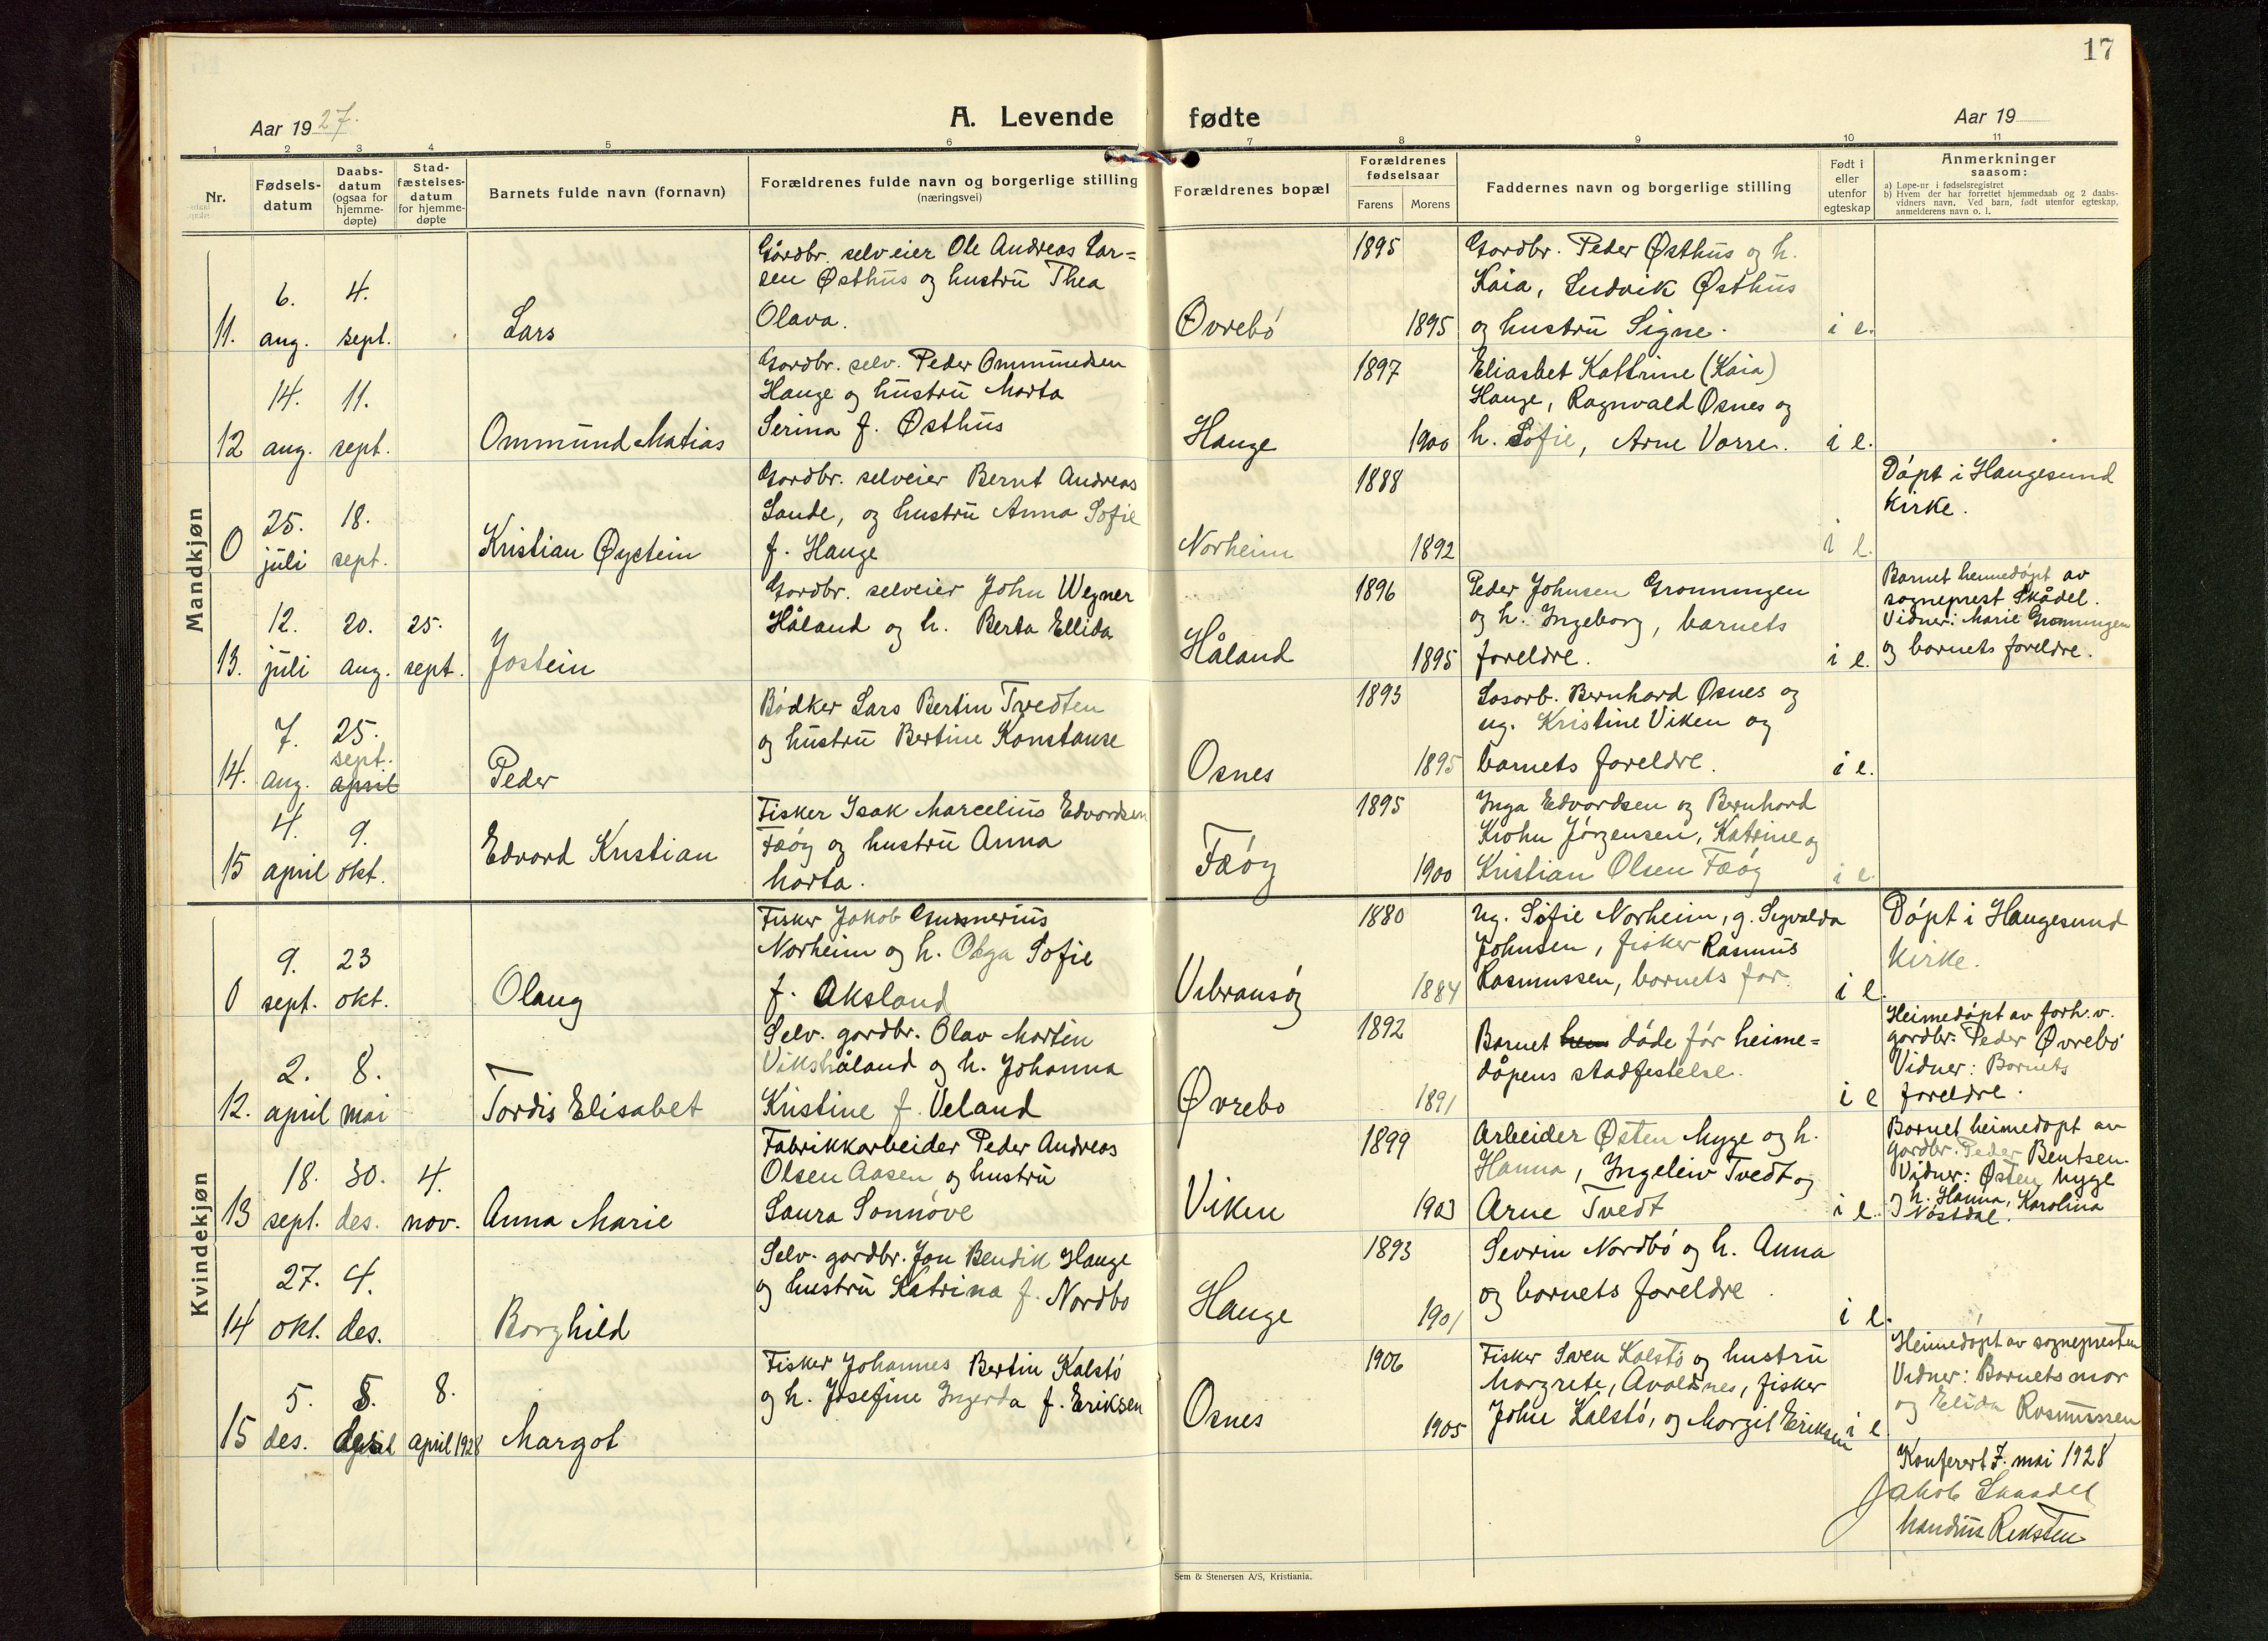 17
Aar 1927.
A. Levende fødte
Aar 19
1 2 3 4 5 6 7 8 9 10 11
Nr.
Fødsels-
datum
Daabs-
datum
(ogsaa for
hjemme-
døpte)
Stad-
fæstelses-
datum
for hjemme-
døpte
Barnets fulde navn (fornavn)
Forældrenes fulde navn og borgerlige stilling
(næringsvei)
Forældrenes bopæl
Forældrenes
fødselsaar
Farens Morens
Faddernes navn og borgerlige stilling
Født i
eller
utenfor
egteskap
Anmerkninger
saasom:
a) Løpe-nr i fødselsregistret
b) Hvem der har forrettet hjemmedaab og 2 daabs-
vidners navn. Ved barn, født utenfor egteskap,
anmelderens navn o. l.
Mandkjøn
11.
6.
aug.
4.
sept.
Lars
Gardbr. selveier Ole Andreas Lar=
sen Østhus og hustru Thea
Olava.
Øvrebö
1895
1895
Gardbr. Peder Østhus og h.
Kaia, Ludvik Østhus
og hustru Signe.
i e.
12
14.
aug.
11.
sept.
Ommund Matias
Gardbr. selv. Peder Ommundsen
Hauge og hustru Marta
Serina f. Østhus
Hauge
1897
1900
Eliasbet Kathrine (Kaia)
Hauge, Ragnvald Osnes og
h. Sofie, Arne Vorre.
i e.
0
25.
juli
18.
sept.
Kristian Øystein
Gardbr. selveier Bernt Andreas
Sande, og hustru Anna Sofie
f. Hauge
Norheim
1888
1892
i e.
Döpt i Haugesund
Kirke.
13.
12.
juli
20.
aug.
25.
sept.
Jostein
Gardbr. selveier John Wegner
Håland og h. Berta Ellida
Håland
1896
1895
Peder Johnsen Gronningen
og h. Ingeborg, barnets
foreldre.
i e.
Barnet hemedöpt av
sogneprest Skådel.
Vidner: Marie Gronningen
og barnets foreldre.
14.
7.
aug.
25.
sept.
april
Peder
Bödker Lars Bertin Tvedten
og hustru Bertine Konstanse
Osnes
1893
1895
Losarb. Bernhard Osnes og
ug. Kristine Viken og
barnets foreldre.
i e.
15
4.
april
9.
okt.
Edvard Kristian
Fisker Isak Marcelius Edvardsen
Fæöy og hustru Anna
Marta.
Fæöy
1895
1900
Inga Edvardsen og Bernhard
Krohn Jörgensen, Katrine og
Kristian Olsen Fæöy
i e.
Kvindekjøn
0
9.
sept.
23
okt.
Olaug
Fisker Jakob Gunnerius
Norheim og h. Olga Sofie
f. Aksland
Vibransöy
1880
1884
Ug. Sofie Norheim, g. Sigvalda
Johnsen, fisker Rasmus
Rasmussen, barnets far.
i e.
Döpt i Haugesund
Kirke.
12.
2.
april
8.
mai
Tordis Elisabet
Selv. gardbr. Olav Martin
Vikshåland og h. Johanna
Kristine f. Veland
Øvrebo
1892
1891
Barnet hem döde för heime=
dåpens stadfestelse.
i e
Heimedöpt av forh.v.
gardbr. Peder Øvrebö
Vidner: Barnets
foreldre.
13
18.
sept.
30.
des.
4.
nov.
Anna Marie
Fabrikkarbeider Peder Andreas
Olsen Aasen og hustru
Laura Sonnöve
Viken
1899
1903
Arbeider Østen Myge og h.
Hanna, Ingeleiv Tvedt og
Arne Tvedt
i e.
Barnet heimedöpt av
gardbr. Peder Bentsen.
Vidner: Østen Myge
og h. Hanna, Karolina
Nöstdal.
14
27.
okt.
4.
des.
Borghild
Selv. gardbr. Jon Bendik Hauge
og hustru Katrina f. Nordbo
Hauge
1893
1901
Sevrin Nordbö og h. Anna
og barnets foreldre.
i e.
15
5.
des.
8.
8.
april 1928
Margot
Fisker Johannes Bertin Kalstö
og h. Josefine Ingerda f. Eriksen
Osnes
1906
1905
Fisker Sven Kalstö og hustru
Margrete, Avaldsnes, fisker
John Kalstö, og Margit Eriksen
i e
Heimedöpt av sognepresten
Vidner: Barnets mor
og Elida Rasmussen
Konferert 7. mai 1928
Jakob Skaadel
Mandius Reksten
Sem & Stenersen A/S, Kristiania.